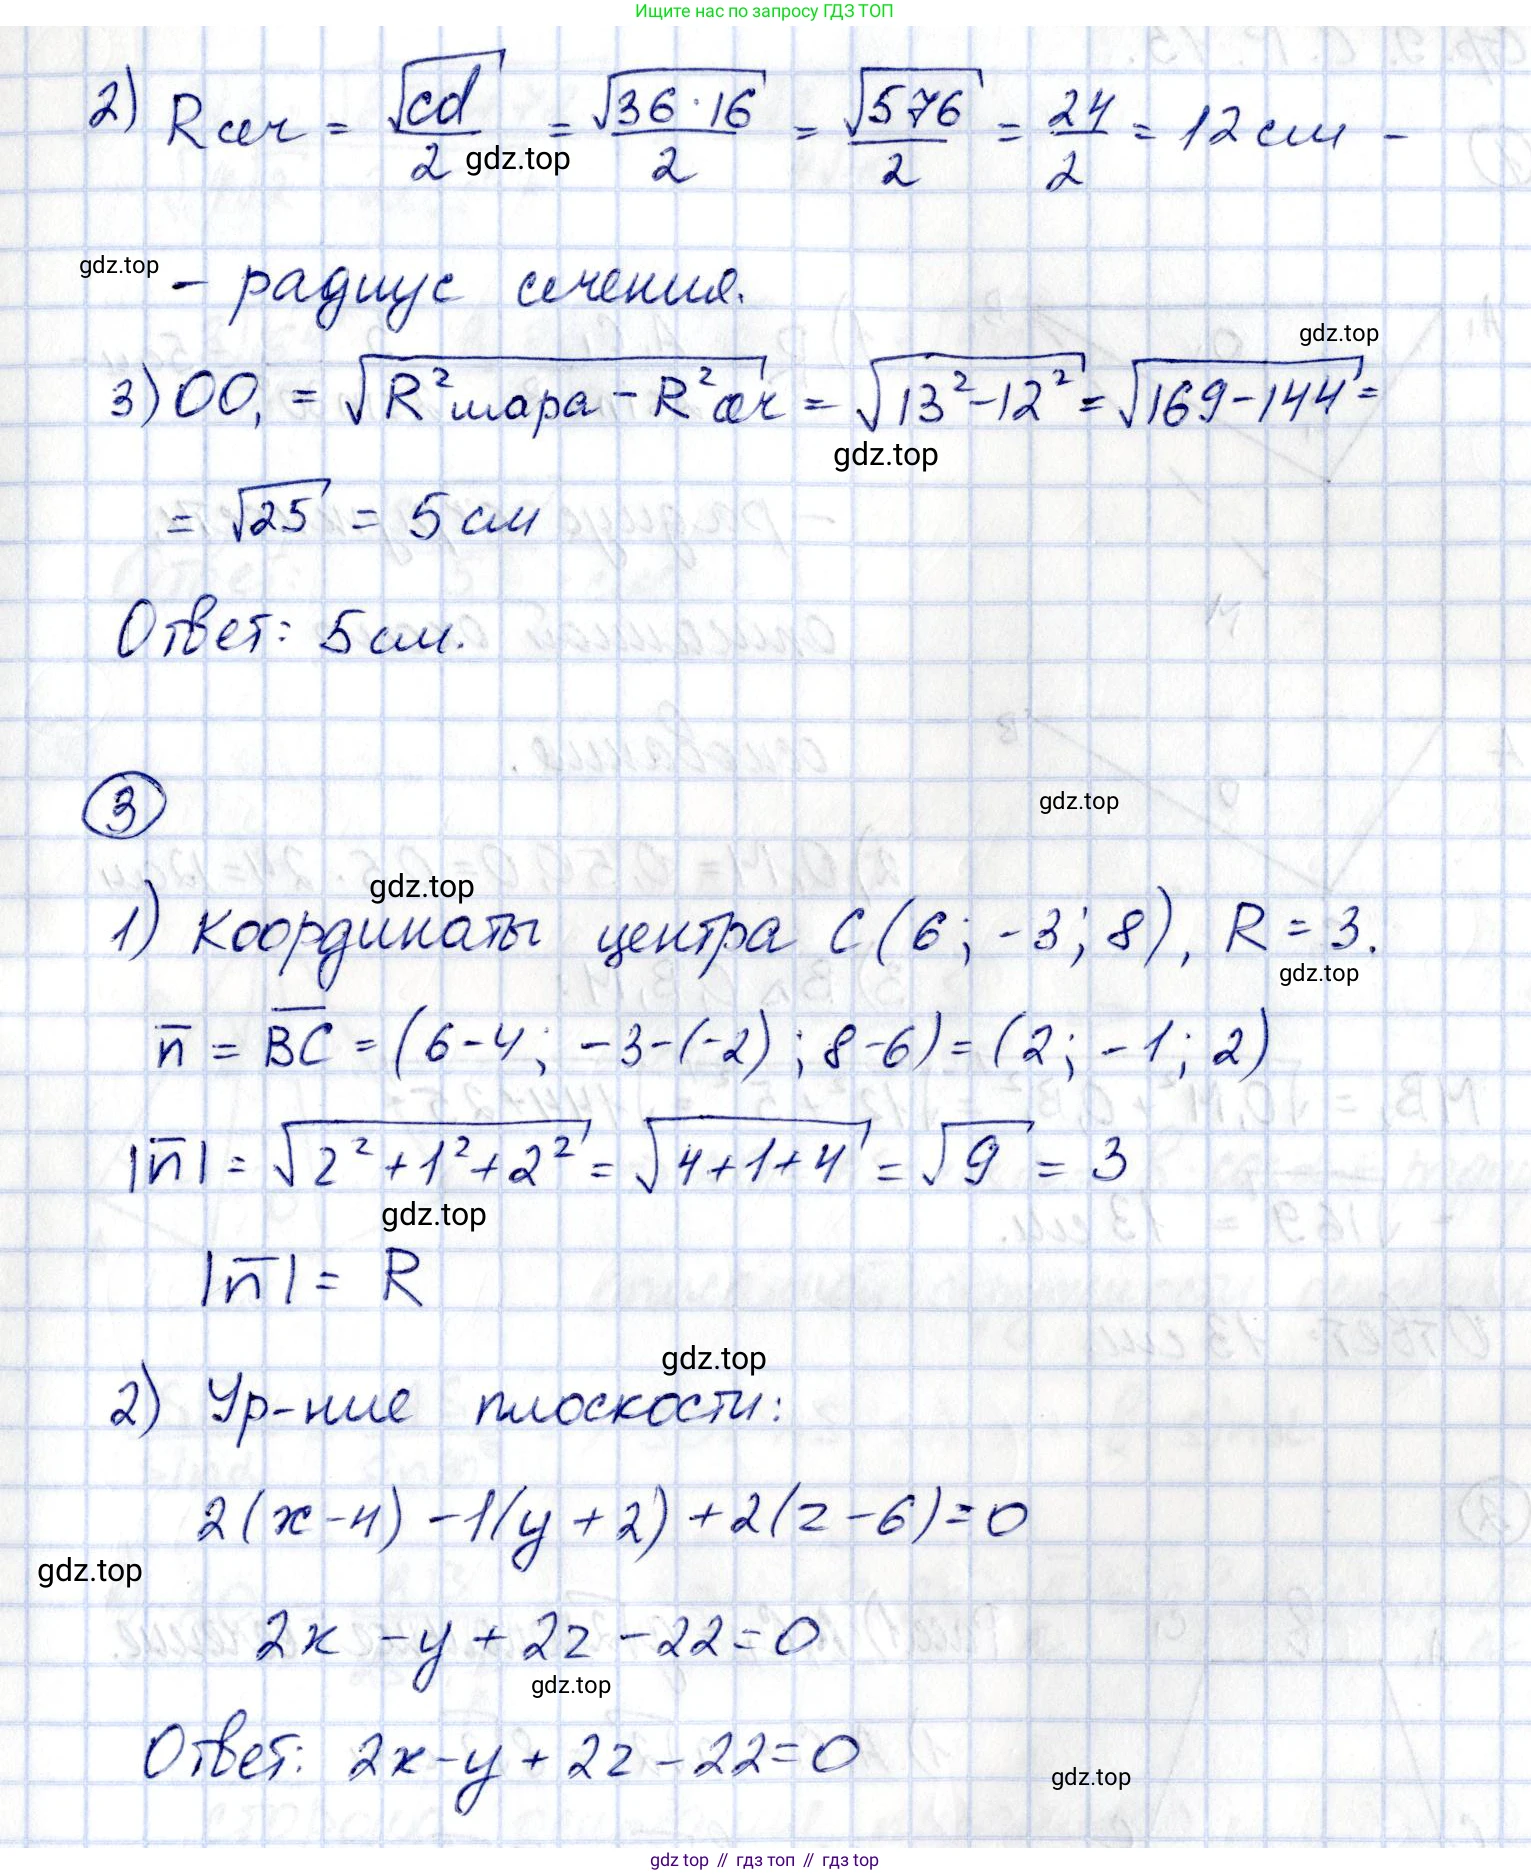 Ищите нас по запросу ГДЗ ТОП
2) Rсеч = √cd/2 = √36·16/2 = √576/2 = 24/2 = 12 см –
gdz.top
gdz.top
– радиус сечения.
gdz.top
3) OO₁ = √R²шара – R²сеч = √13²–12² = √169–144 =
gdz.top
= √25 = 5 см
Ответ: 5 см.
3
gdz.top
gdz.top
1) Координаты центра C(6; -3; 8), R = 3.
gdz.top
n̅ = B̅C̅ = (6-4; -3-(-2); 8-6) = (2; -1; 2)
|n̅| = √2²+1²+2² = √4+1+4 = √9 = 3
gdz.top
|n̅| = R
gdz.top
2) Ур-ние плоскости:
2(x-4) -1(y+2) +2(z-6)=0
gdz.top
2x -y +2z -22=0
gdz.top
Ответ: 2x-y+2z-22=0
gdz.top
gdz top // гдз топ // гдз top